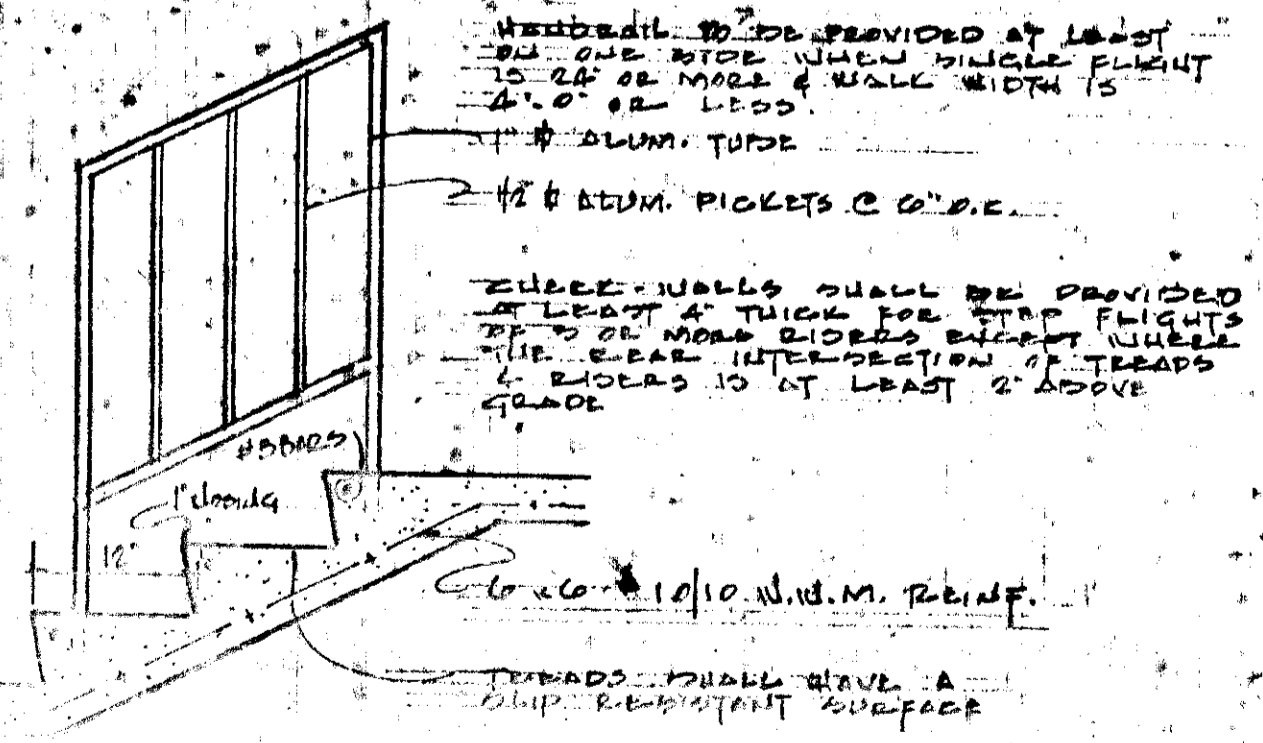 HANDRAIL TO BE PROVIDED AT LEAST
ON ONE SIDE WHEN SINGLE FLIGHT
IS 24" OR MORE & WALL WIDTH IS
4'-0" OR LESS.
1" ⌀ ALUM. TUBE
1/2" ⌀ ALUM. PICKETS @ 6" O.C.
CHEEK-WALLS SHALL BE PROVIDED
AT LEAST 4" THICK FOR STEP FLIGHTS
OF 3 OR MORE RISERS EXCEPT WHERE
THE REAR INTERSECTION OF TREADS
& RISERS IS AT LEAST 2" ABOVE
GRADE
#3 BARS
1" NOSING
12"
6x6 10/10 W.W.M. REINF.
TREADS SHALL HAVE A
SLIP RESISTANT SURFACE